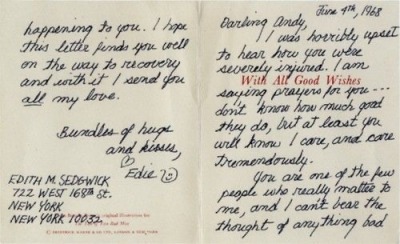 June 4th, 1968
Darling Andy,
I was horribly upset
to hear how you were
severely injured. I am
With All Good Wishes
saying prayers for you---
don't know how much good
they do, but at least you
will know I care, and care
tremendously.
You are one of the few
people who really matter to
me, and I can't bear the
thought of anything bad
happening to you. I hope
this letter finds you well
on the way to recovery
and with it I send you
all my love.
Bundles of hugs
and kisses,
Edie
EDITH M. SEDGWICK
722 WEST 168th St.
NEW YORK
NEW YORK 10032
Original Illustration for
Two Bad Mice
© FREDERICK WARNE & CO LTD, LONDON & NEW YORK